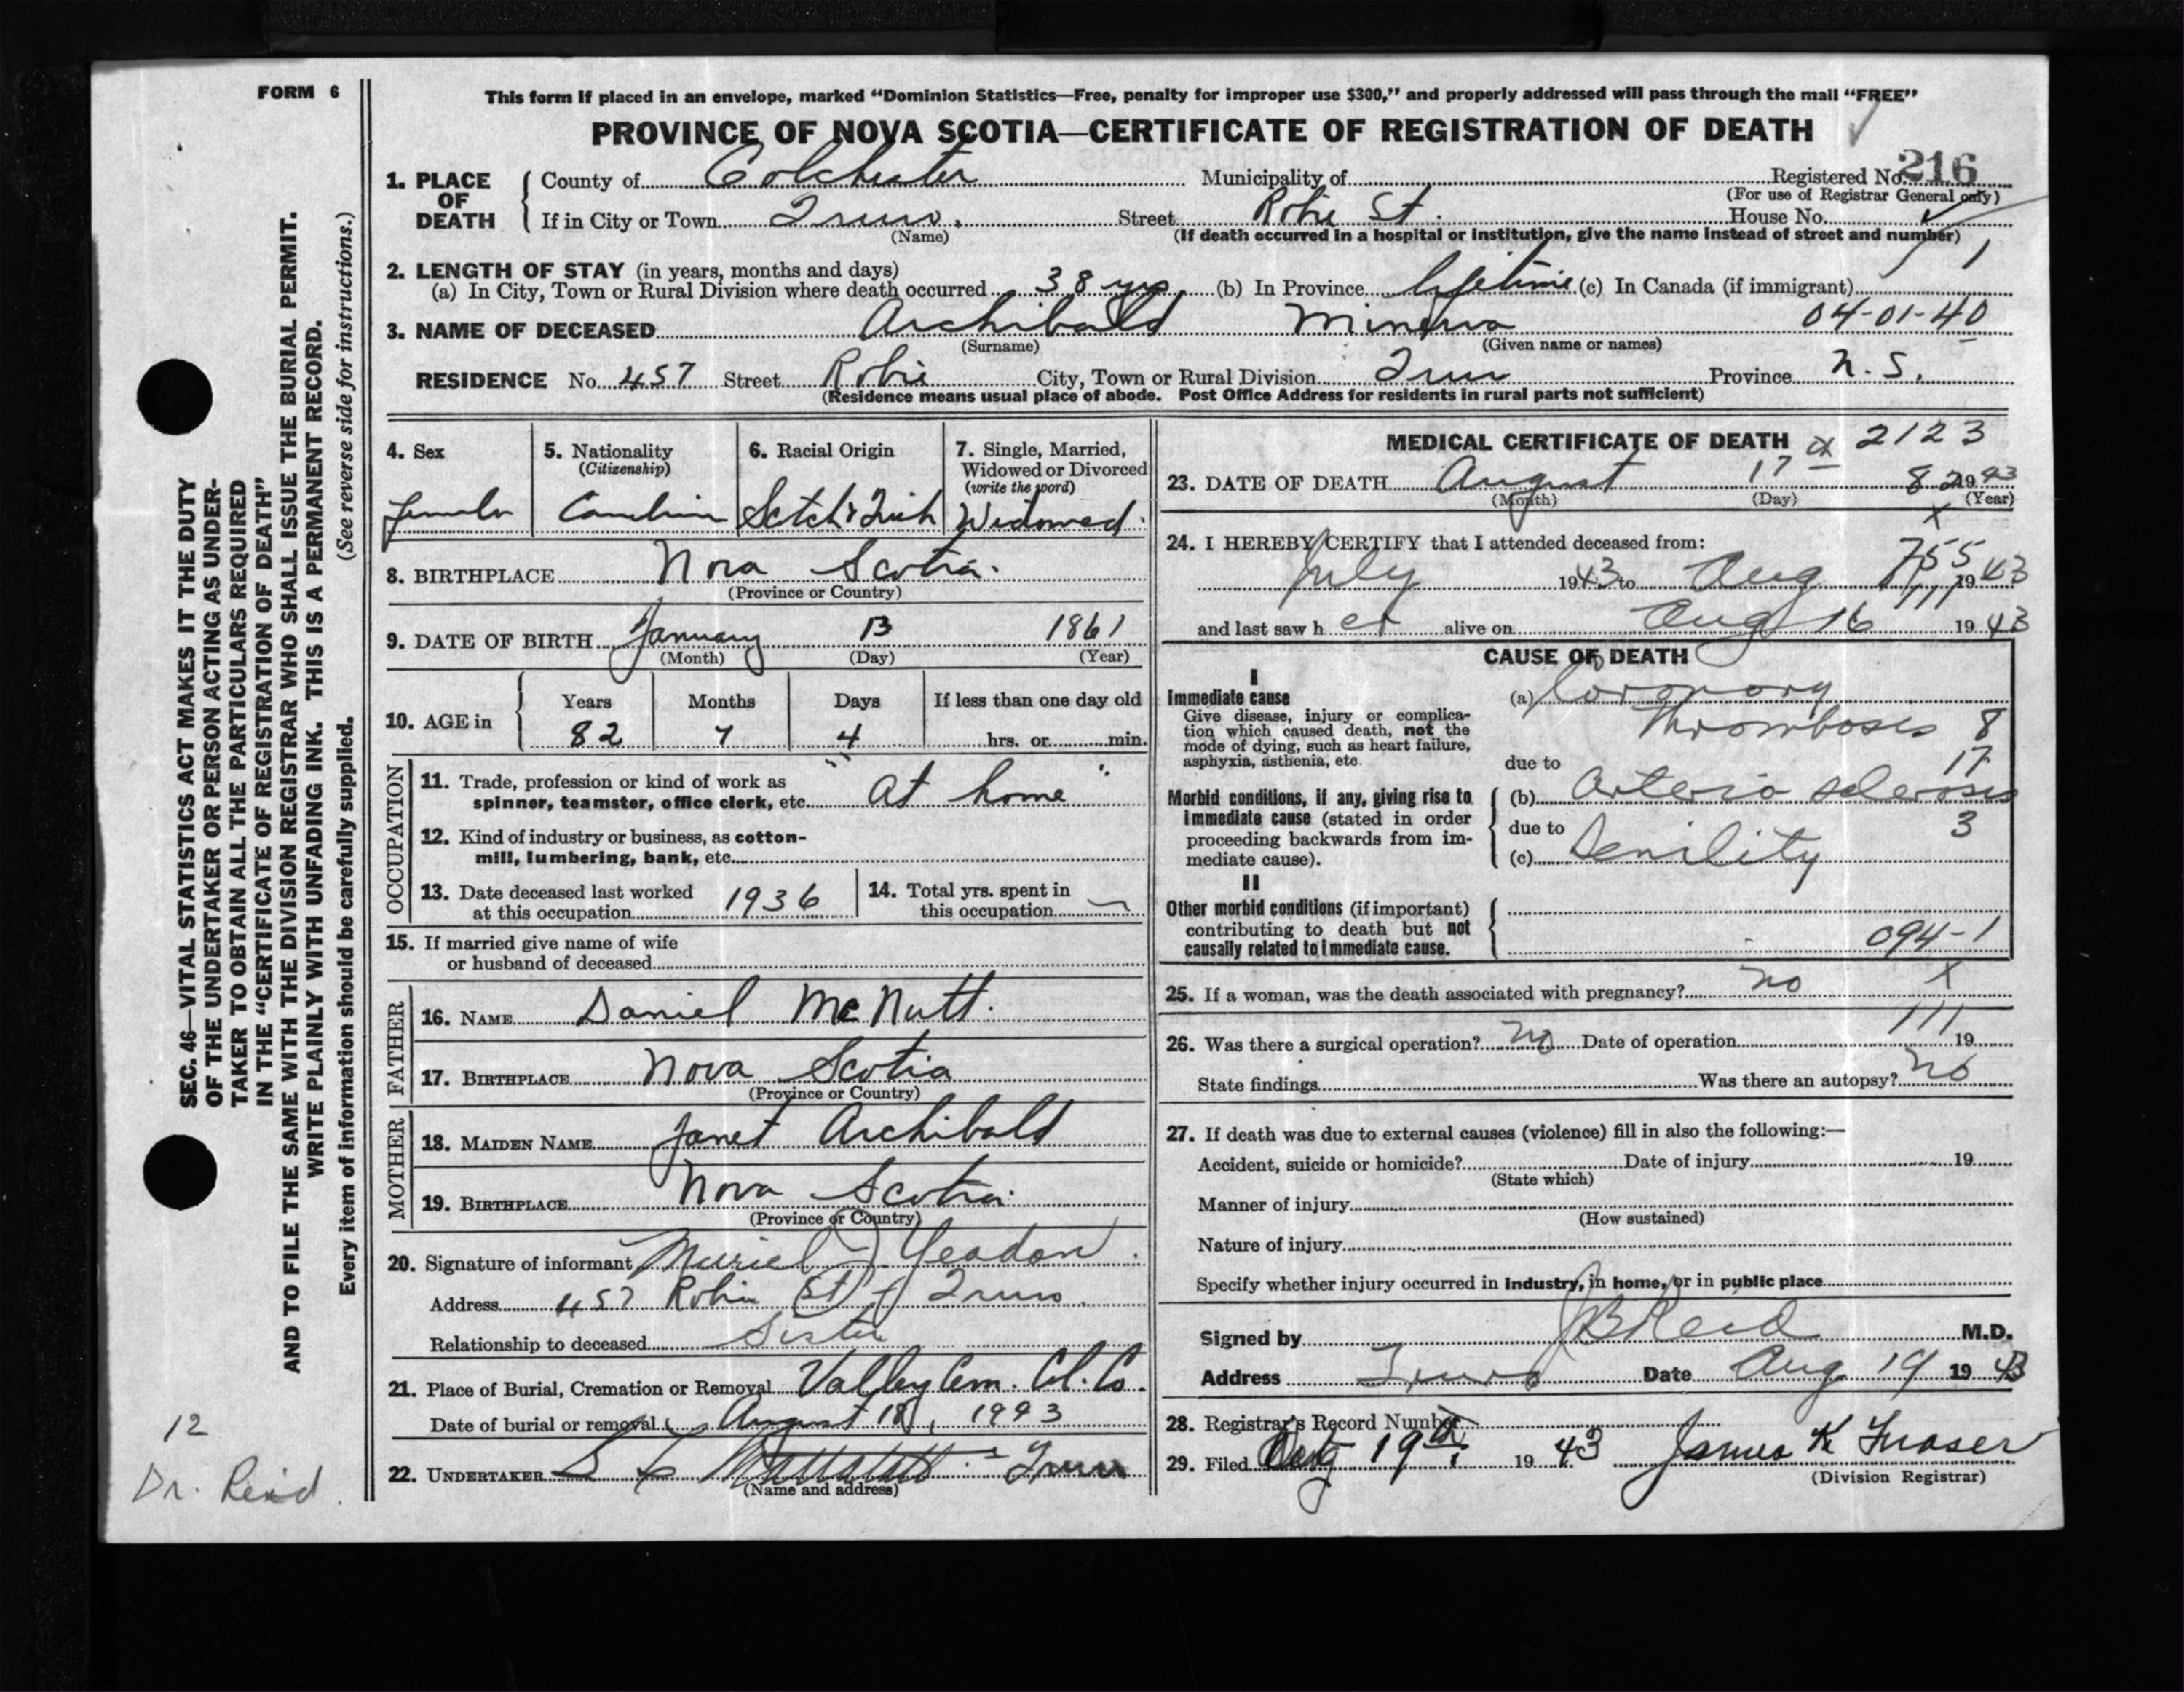 FORM 6
This form if placed in an envelope, marked “Dominion Statistics—Free, penalty for improper use $300,” and properly addressed will pass through the mail “FREE”
PROVINCE OF NOVA SCOTIA—CERTIFICATE OF REGISTRATION OF DEATH
1. PLACE OF DEATH
County of Colchester Municipality of Registered No. 216
(For use of Registrar General only)
If in City or Town Truro. Street Robie St. House No.
(Name) (If death occurred in a hospital or institution, give the name instead of street and number)
2. LENGTH OF STAY (in years, months and days)
(a) In City, Town or Rural Division where death occurred 38 yrs (b) In Province lifetime (c) In Canada (if immigrant)
3. NAME OF DECEASED Archibald Minerva 04-01-40
(Surname) (Given name or names)
RESIDENCE No. 457 Street Robie City, Town or Rural Division Truro Province N.S.
(Residence means usual place of abode. Post Office Address for residents in rural parts not sufficient)
4. Sex Female
5. Nationality (Citizenship) Canadian
6. Racial Origin Scotch & Irish
7. Single, Married, Widowed or Divorced (write the word) Widowed.
8. BIRTHPLACE Nova Scotia.
(Province or Country)
9. DATE OF BIRTH January 13 1861
(Month) (Day) (Year)
10. AGE in Years Months Days If less than one day old
82 7 4 hrs. or min.
OCCUPATION
11. Trade, profession or kind of work as
spinner, teamster, office clerk, etc. "at home"
12. Kind of industry or business, as cotton-
mill, lumbering, bank, etc.
13. Date deceased last worked
at this occupation 1936
14. Total yrs. spent in
this occupation —
15. If married give name of wife
or husband of deceased
FATHER
16. NAME Daniel McNutt.
17. BIRTHPLACE Nova Scotia
(Province or Country)
MOTHER
18. MAIDEN NAME Janet Archibald
19. BIRTHPLACE Nova Scotia.
(Province or Country)
20. Signature of informant Muriel J Yeadon.
Address 457 Robie St Truro.
Relationship to deceased Sister
21. Place of Burial, Cremation or Removal Valley Cem. Col. Co.
Date of burial or removal August 18, 1943
22. UNDERTAKER Truro
(Name and address)
MEDICAL CERTIFICATE OF DEATH 2123
23. DATE OF DEATH August 17 82 1943
(Month) (Day) (Year)
X
24. I HEREBY CERTIFY that I attended deceased from:
755
July 1943 to Aug 1943
111
and last saw her alive on Aug 16 1943
CAUSE OF DEATH
I
Immediate cause
Give disease, injury or complica-
tion which caused death, not the
mode of dying, such as heart failure,
asphyxia, asthenia, etc.
(a) Coronary
Thrombosis 8
17
due to
Morbid conditions, if any, giving rise to
immediate cause (stated in order
proceeding backwards from im-
mediate cause).
(b) Arterio sclerosis
due to 3
(c) Senility
II
Other morbid conditions (if important)
contributing to death but not
causally related to immediate cause.
094-1
25. If a woman, was the death associated with pregnancy? no X
111
26. Was there a surgical operation? no Date of operation 19
State findings Was there an autopsy? no
27. If death was due to external causes (violence) fill in also the following:—
Accident, suicide or homicide? Date of injury 19
(State which)
Manner of injury
(How sustained)
Nature of injury
Specify whether injury occurred in industry, in home, or in public place
Signed by J B Reid M.D.
Address Truro Date Aug 19 1943
28. Registrar's Record Number
29. Filed Aug 19th. 1943 James K Fraser
(Division Registrar)
SEC. 46—VITAL STATISTICS ACT MAKES IT THE DUTY
OF THE UNDERTAKER OR PERSON ACTING AS UNDER-
TAKER TO OBTAIN ALL THE PARTICULARS REQUIRED
IN THE “CERTIFICATE OF REGISTRATION OF DEATH”
AND TO FILE THE SAME WITH THE DIVISION REGISTRAR WHO SHALL ISSUE THE BURIAL PERMIT.
WRITE PLAINLY WITH UNFADING INK. THIS IS A PERMANENT RECORD.
Every item of information should be carefully supplied. (See reverse side for instructions.)
12
Dr. Reid.